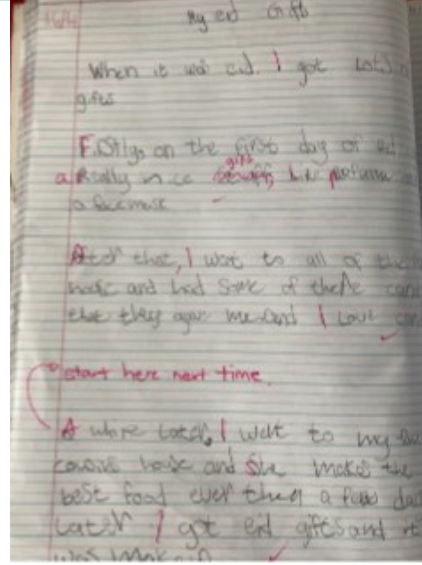 16/4
My eid Gifts
When it was eid. I got Lots
gifts
Firstly, on the first day of eid
a Really nice gifts like perfume
a facemask
After that, I went to all of the
house and had some of there
that they gave me and I Love
start here next time.
A while Later, I went to my
cousins house and she makes the
best food ever then a few
Later I got eid gifts and it
was